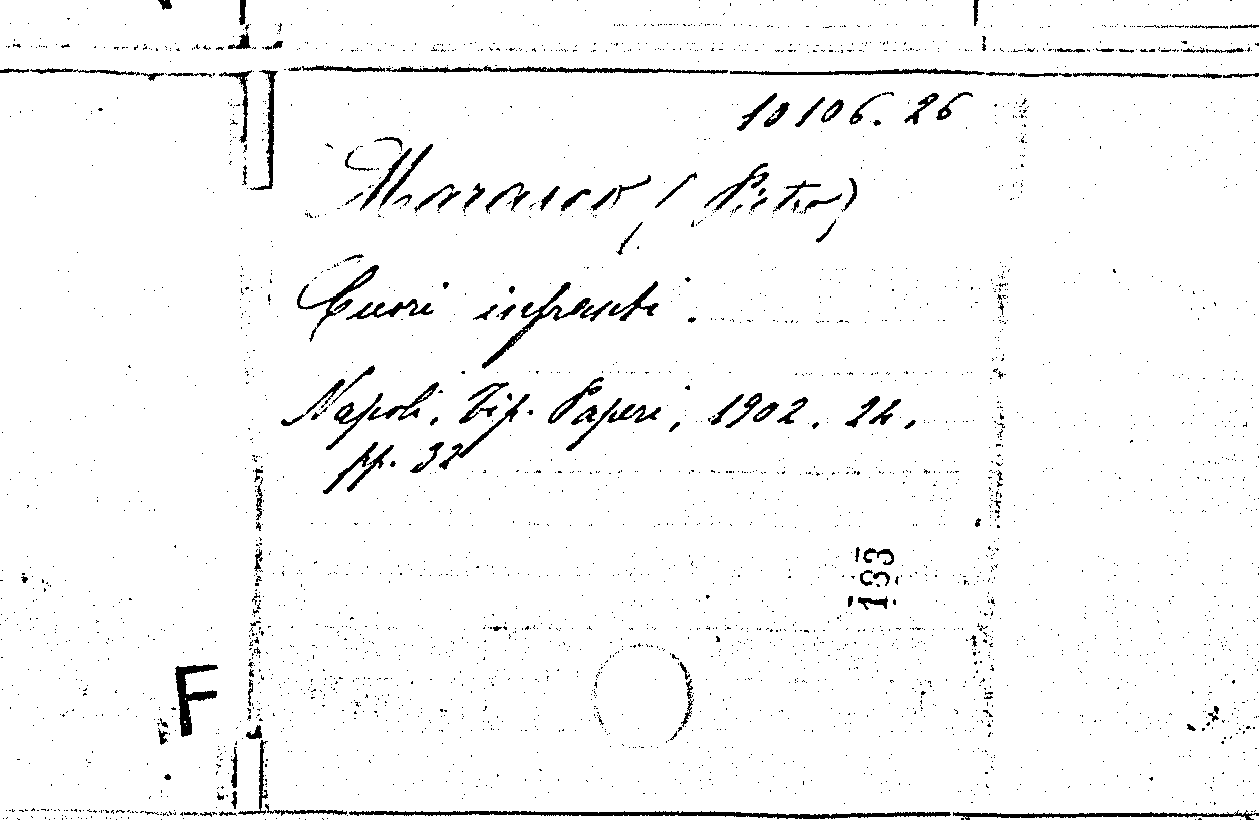 10106.26
Marasco (Pietro)
Cuori infranti.
Napoli, Tip. Paperi, 1902. 24,
pp. 32
133
F